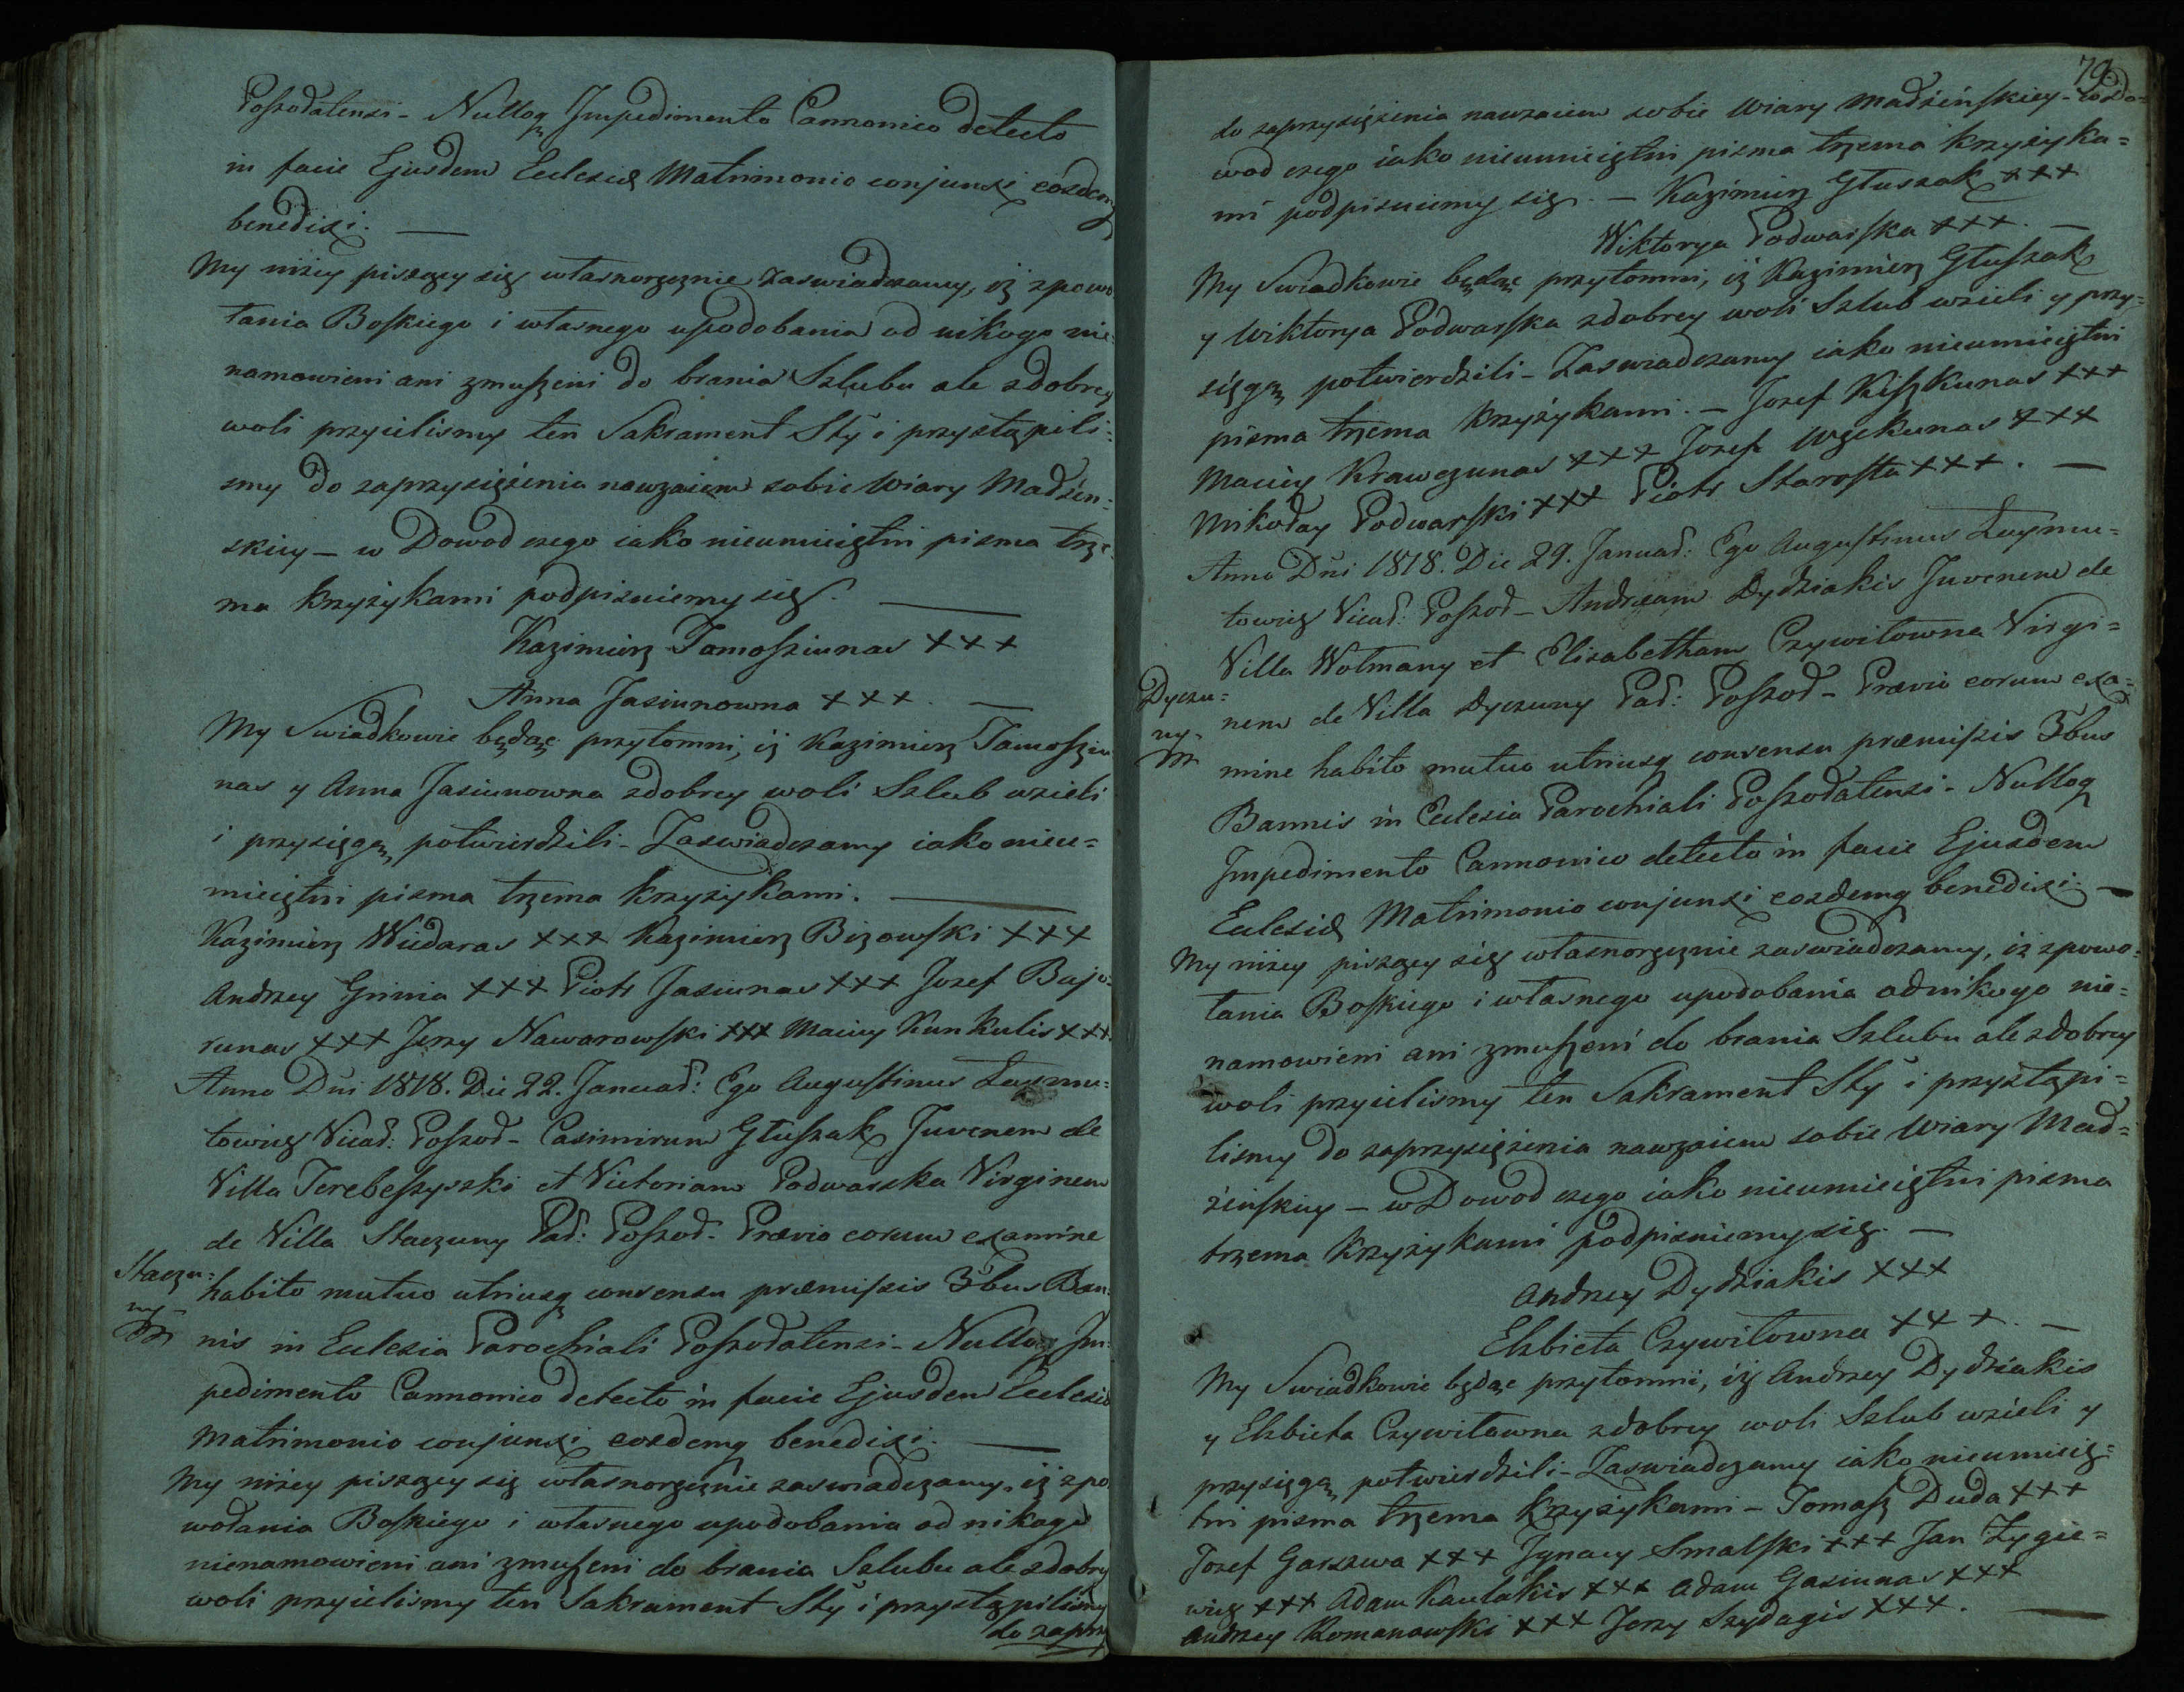 Poszodalensi - Nulloq Impedimento Cannonico detecto
in facie Ejusdem Eclesiæ Matrimonio conjunxi eosdemq
benedixi. —
My niżey piszący się własnoręcznie zaswiadczamy, iż zpowo
łania Boskiego i własnego upodobania od nikogo nie=
namowieni ani zmuszeni do brania Szlubu ale zdobrey
woli przyielismy ten Sakrament Sty i przystąpili=
smy do zaprzysiężenia nawzaiem sobie Wiary Madżen=
skiey — w Dowod czego iako nieumieiętni pisma trze=
ma krzyżykami podpisuiemy się. —
Kazimierz Tamosziunas +++
Anna Jasiunowna +++. —
My Swiadkowie będąc przytomni, iż Kazimierz Tamosziu
nas y Anna Jasiunowna zdobrey woli Szlub wzieli
i przysięgą potwierdzili - Zaswiadczamy iako nieu=
mieiętni pisma trzema krzyżykami. —
Kazimierz Widaras +++ Kazimierz Bizowski +++
Andrzey Grinia +++ Piotr Jasiunas +++ Jozef Bujo=
runas +++ Jerzy Nawarowski +++ Maciey Kunkulis +++
Anno Dni 1818. Die 22. Januar: Ego Augustinus Laymu=
towicz Vicar: Poszod - Casimirum Głuszak Juvenem de
Villa Terebeszyszki et Victoriam Podwarska Virginem
de Villa Staczuny Par: Poszod - Prævio eorum examine
Staczu=
ny -
habito mutuo utriusq consensu præmissis 3bus Ban=
nis in Eclesia Parochiali Poszodalensi - Nulloq Im=
pedimento Cannonico detecto in facie Ejusdem Eclesiæ
Matrimonio conjunxi eosdemq benedixi. —
My niżey piszący się własnoręcznie zaswiadczamy, iż zpo
wołania Boskiego i własnego upodobania od nikogo
nienamowieni ani zmuszeni do brania Szlubu ale zdobrey
woli przyielismy ten Sakrament Sty i przystąpilismy
do zaprzy
79.
do zaprzysiężenia nawzaiem sobie Wiary Madżeńskiey - w do=
wod czego iako nieumieiętni pisma trzema krzyżyka=
mi podpisuiemy się. — Kazimierz Głuszak +++
Wiktorya Podwarska +++. —
My Swiadkowie będąc przytomni, iż Kazimierz Głuszak
y Wiktorya Podwarska zdobrey woli Szlub wzieli y przy=
sięgą potwierdzili - Zaswiadczamy iako nieumieiętni
pisma trzema krzyżykami. — Jozef Kiszkunas +++
Maciey Krawczunas +++ Jozef Wzekunas +++
Mikołay Podwarski +++ Piotr Starosta +++. —
Anno Dni 1818. Die 29. Januar: Ego Augustinus Laymu=
towicz Vicar: Poszod - Andream Dydziakis Juvenem de
Villa Wołmany et Elisabetham Czywiłowna Virgi=
Dyczu=
ny -
nem de Villa Dyczuny Par: Poszod - Prævio eorum exa=
mine habito mutuo utriusq consensu præmissis 3bus
Bannis in Eclesia Parochiali Poszodalensi - Nulloq
Impedimento Cannonico detecto in facie Ejusdem
Eclesiæ Matrimonio conjunxi eosdemq benedixi —
My niżey piszący się własnoręcznie zaswiadczamy, iż zpowo=
łania Boskiego i własnego upodobania odnikogo nie=
namowieni ani zmuszeni do brania Szlubu ale zdobrey
woli przyielismy ten Sakrament Sty i przystąpi=
lismy do zaprzysiężenia nawzaiem sobie Wiary Mad=
żeńskiey — w Dowod czego iako nieumieiętni pisma
trzema krzyżykami podpisuiemy się. —
Andrzey Dydziakis +++
Elzbieta Czywiłowna +++. —
My Swiadkowie będąc przytomni, iż Andrzey Dydziakis
y Elzbieta Czywiłowna zdobrey woli Szlub wzieli y
przysięgą potwierdzili - Zaswiadczamy iako nieumieię=
tni pisma trzema krzyżykami - Tomasz Duda +++
Jozef Garszwa +++ Jgnacy Smalski +++ Jan Zygie=
wicz +++ Adam Kaulakis +++ Adam Gasiunas +++
Andrzey Romanowski +++ Jerzy Szydagis +++. —